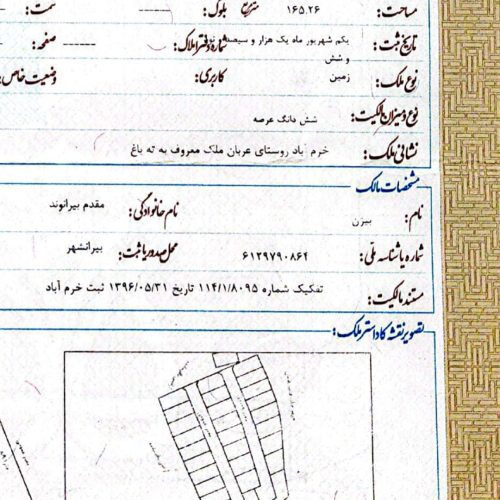 مساحت: ۱۶۵.۲۶ مترمربع بلوک: ------ سمت:
تاریخ ثبت: یکم شهریور ماه یک هزار و سیصد و نود و شش شماره دفتر املاک: ------ صفحه: ------
نوع ملک: زمین کاربری: وضعیت خاص:
نوع و میزان مالکیت: شش دانگ عرصه
نشانی ملک: خرم آباد روستای عربان ملک معروف به ته باغ
مشخصات مالک
نام: بیژن نام خانوادگی: مقدم بیرانوند
شماره یا شناسه ملی: ۶۱۲۹۷۹۰۸۶۴ محل صدور یا ثبت: بیرانشهر
مستند مالکیت: تفکیک شماره ۱۱۴/۱/۸۰۹۵ تاریخ ۱۳۹۶/۰۵/۳۱ ثبت خرم آباد
تصویر نقشه کاداستر ملک: